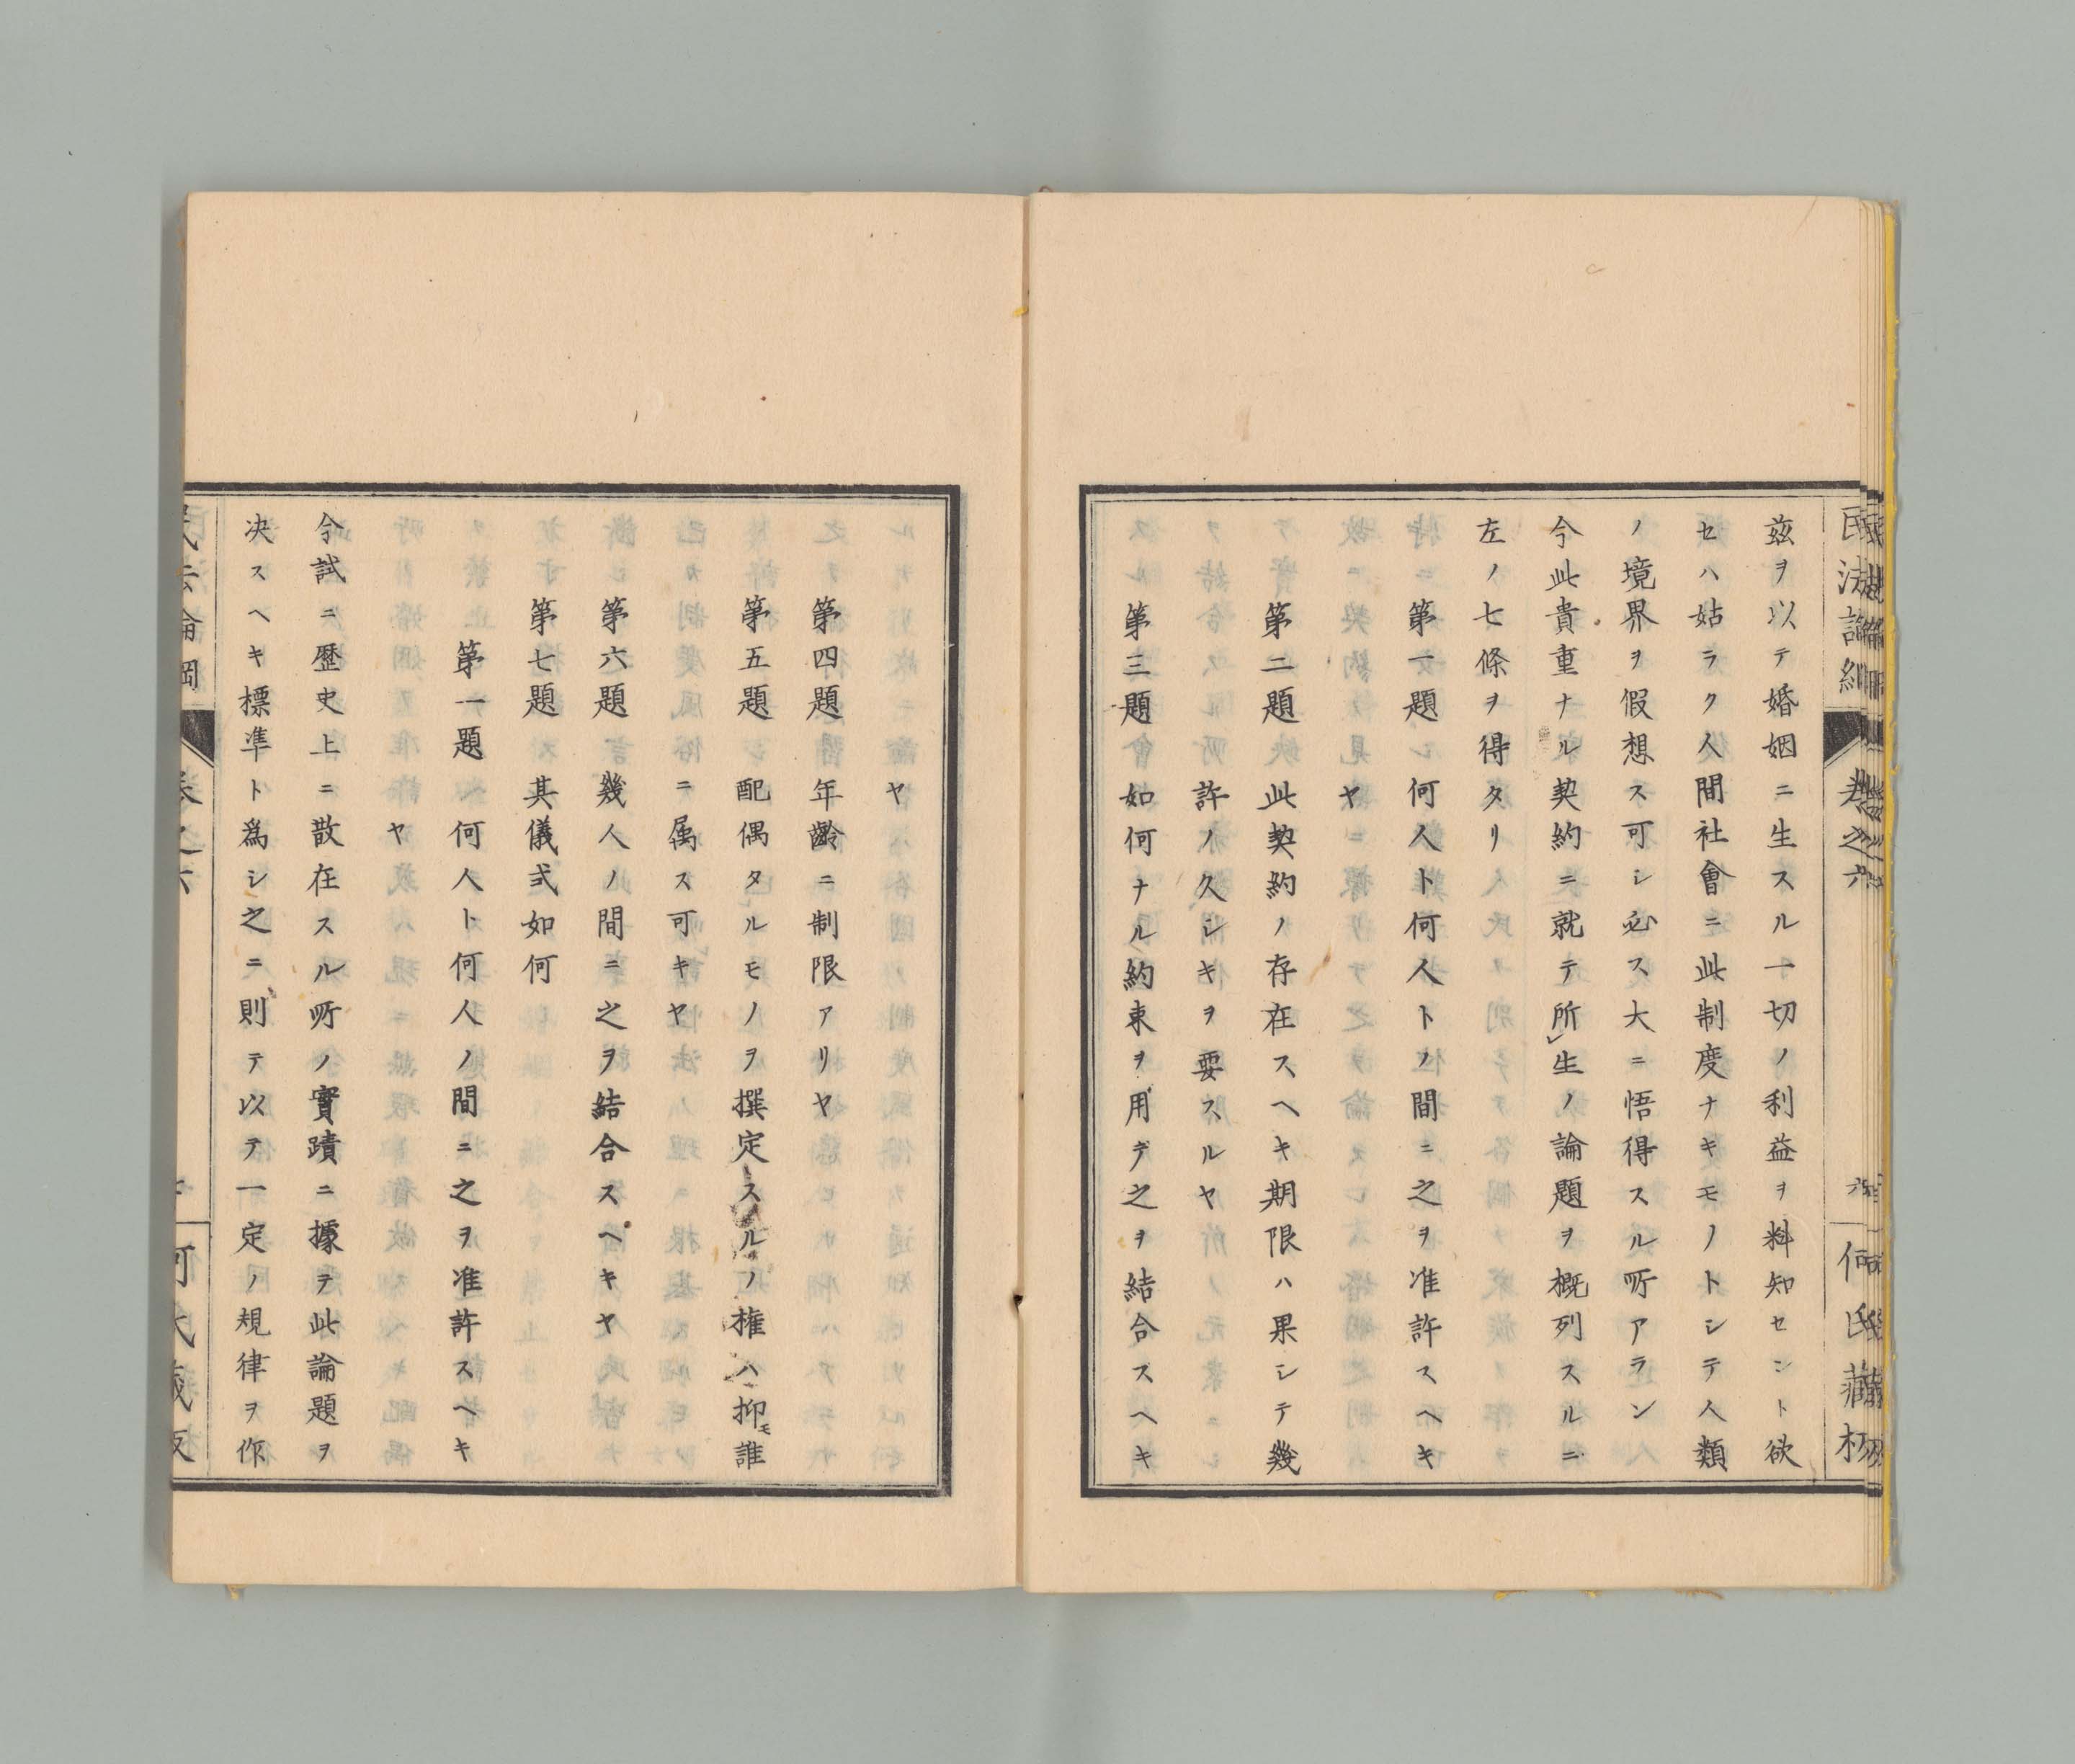 茲ヲ以テ婚姻ニ生スル一切ノ利益ヲ料知セント欲
セハ姑ラク人間社會ニ此制度ナキモノトシテ人類
ノ境界ヲ假想ス可シ必ス大ニ悟得スル所アラン
今此貴重ナル契約ニ就テ所生ノ論題ヲ概列スルニ
左ノ七條ヲ得タリ
第一題 何人ト何人トノ間ニ之ヲ准許スヘキ
ヤ
第二題 此契約ノ存在スヘキ期限ハ果シテ幾
許ノ久シキヲ要スルヤ
第三題 如何ナル約束ヲ用テ之ヲ結合スヘキ
ヤ
第四題 年齡ニ制限アリヤ
第五題 配偶タルモノヲ撰定スルノ權ハ抑モ誰
ニ属ス可キヤ
第六題 幾人ノ間ニ之ヲ結合スヘキヤ
第七題 其儀式如何
第一題 何人ト何人ノ間ニ之ヲ准許スヘキ
ヤ
今試ニ歷史上ニ散在スル所ノ實蹟ニ據テ此論題ヲ
決スヘキ標準ト爲シ之ニ則テ以テ一定ノ規律ヲ作
民法論綱 卷之六 何氏藏板